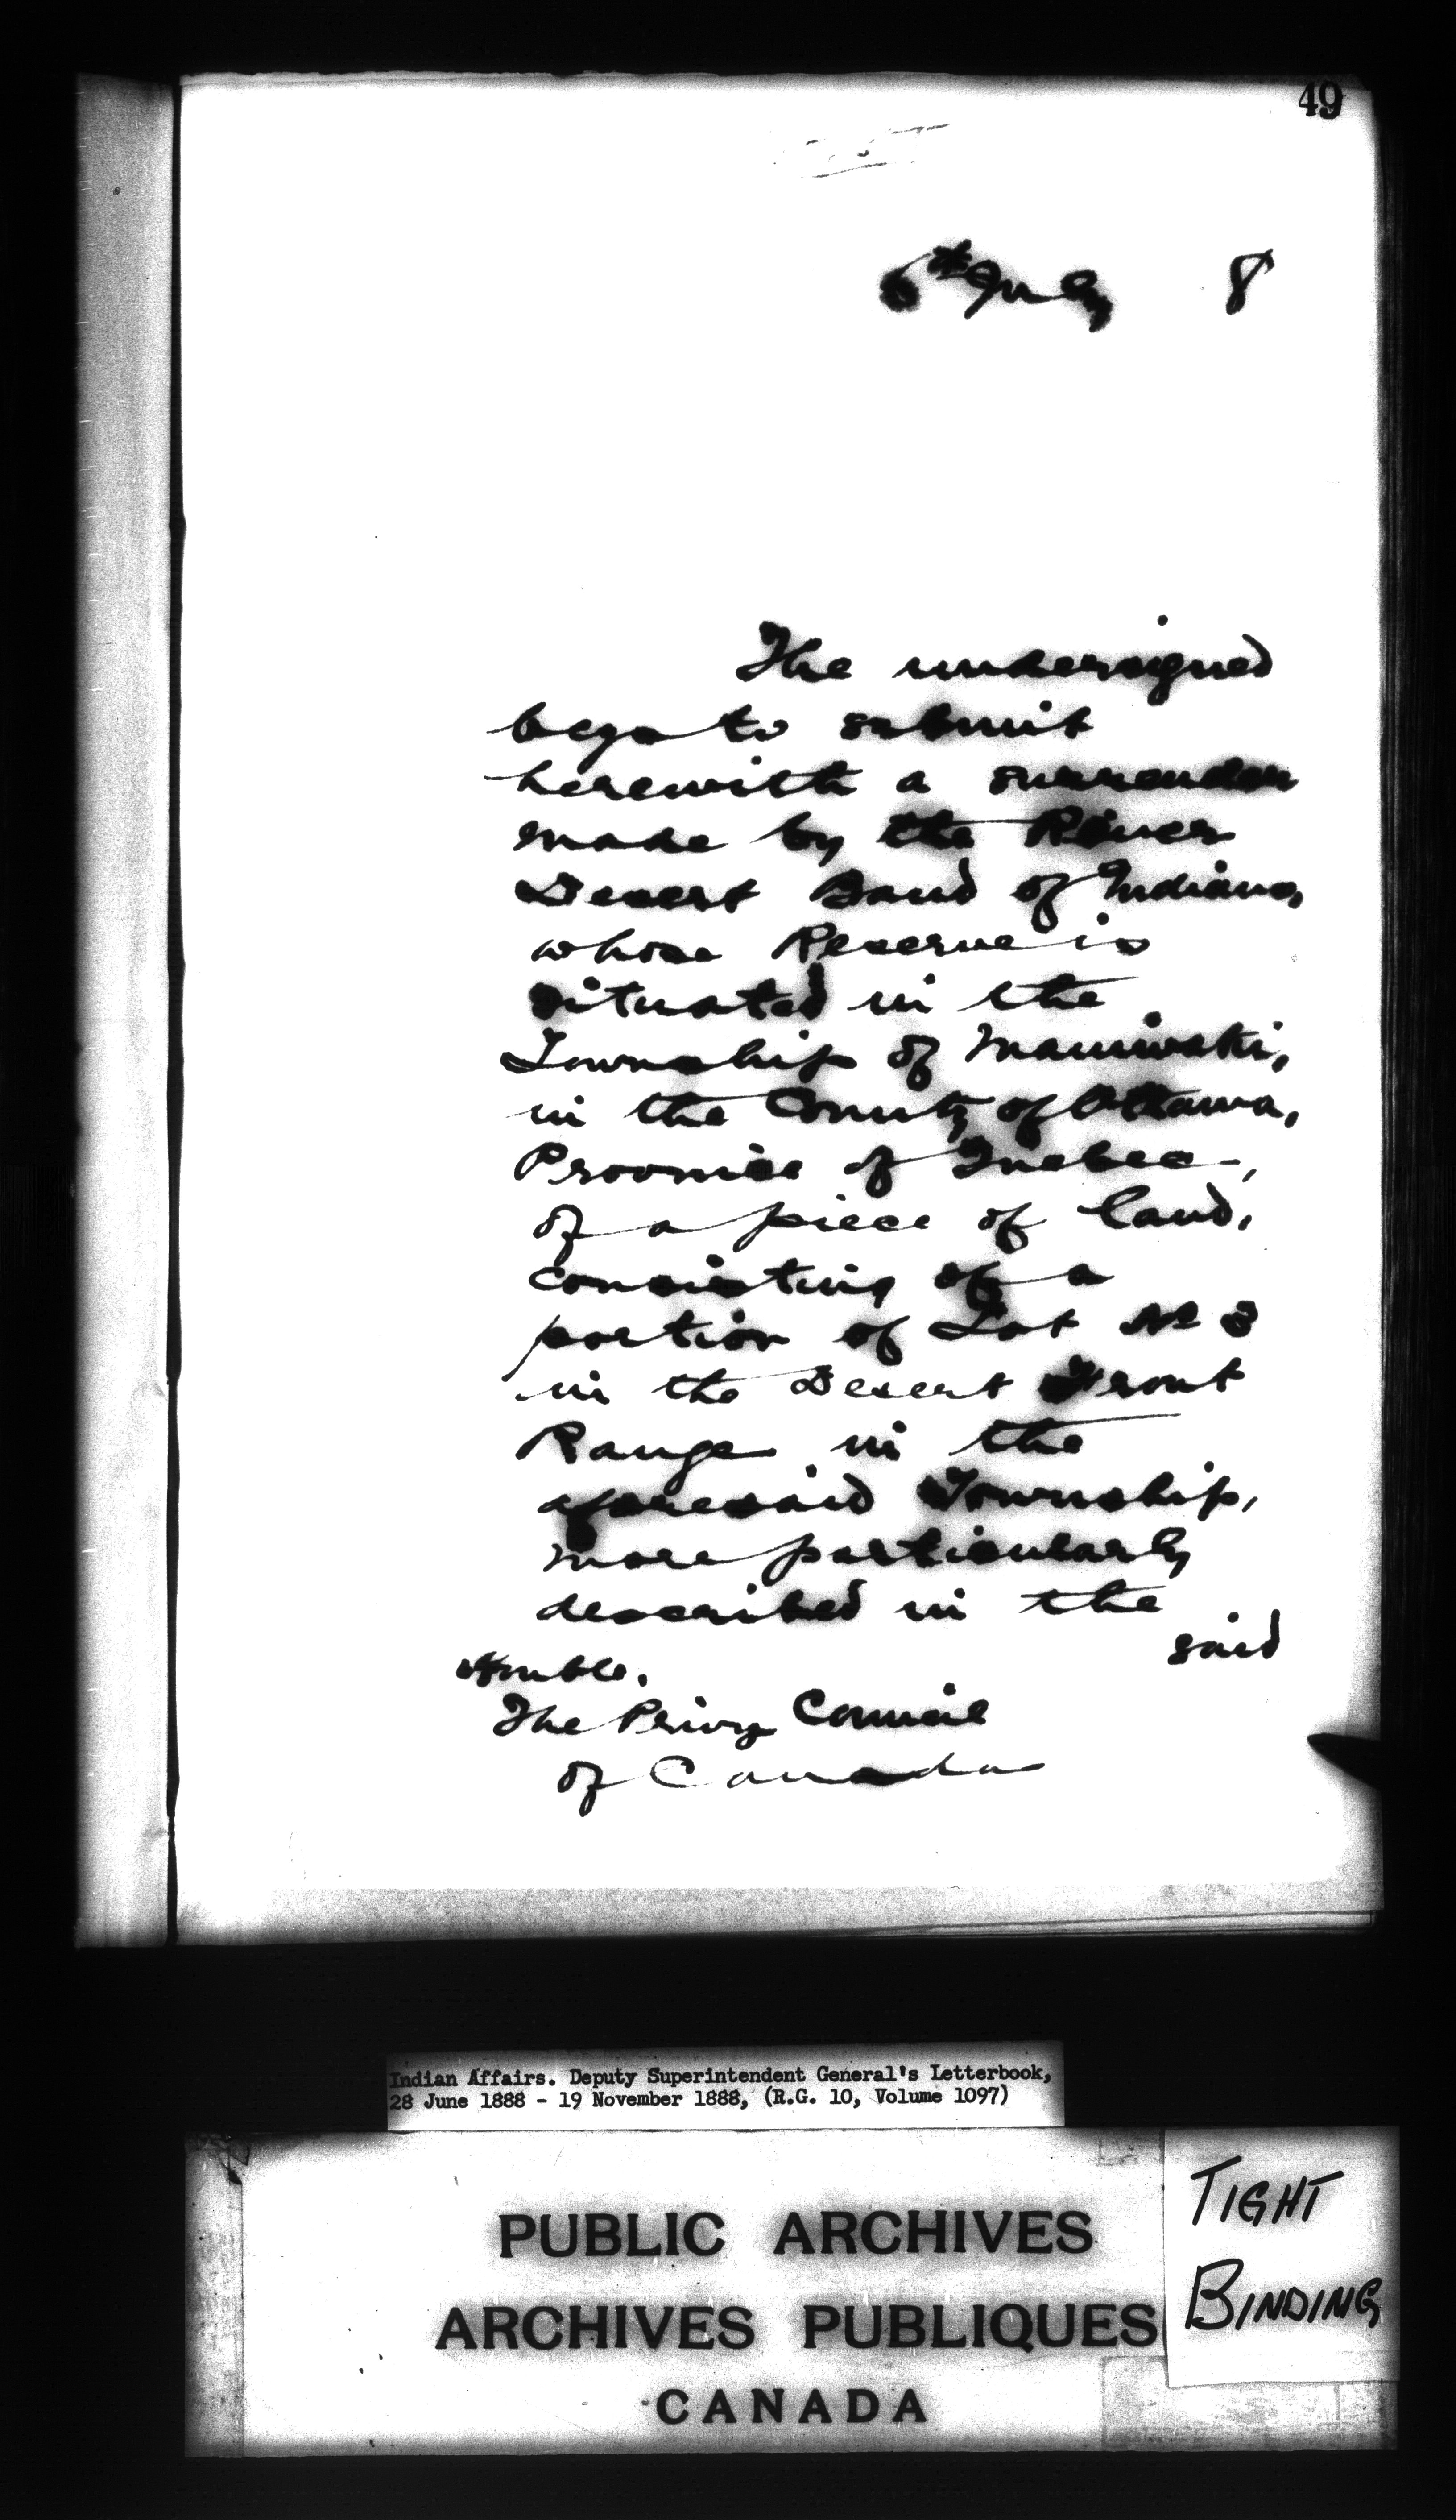 49
6th July 8
The undersigned
begs to submit
herewith a surrender
made by the River
Desert Band of Indians,
whose Reserve is
situated in the
Township of Maniwaki,
in the County of Ottawa,
Province of Quebec,
of a piece of land,
consisting of a
portion of Lot No 3
in the Desert Front
Range in the
aforesaid Township,
more particularly
described in the
said
Honble.
The Privy Council
of Canada
Indian Affairs. Deputy Superintendent General's Letterbook,
28 June 1888 - 19 November 1888, (R.G. 10, Volume 1097)
PUBLIC ARCHIVES
ARCHIVES PUBLIQUES
CANADA
TIGHT
BINDING